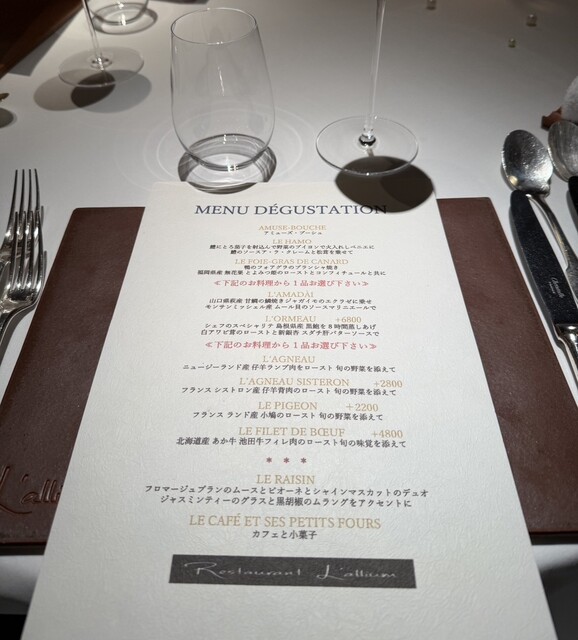 MENU DÉGUSTATION
AMUSE-BOUCHE
アミューズ・ブーシュ
LE HAMO
鱧にとろ茄子を射込んで野菜のブイヨンで火入れしベニエに
鱧のソースア・ラ・クレームと松茸を乗せて
LE FOIE-GRAS DE CANARD
鴨のフォアグラのプランシャ焼き
福岡県産 無花果 とよみつ姫のローストとコンフィチュールと共に
≪下記のお料理から1品お選び下さい≫
L'AMADAÏ
山口県萩産 甘鯛の鱗焼きジャガイモのエクラゼに乗せ
モンサンミッシェル産 ムール貝のソースマリニエールで
L'ORMEAU +6800
シェフのスペシャリテ 島根県産 黒鮑を8時間蒸しあげ
白アワビ茸のローストと新銀杏 スダチ肝バターソースで
≪下記のお料理から1品お選び下さい≫
L'AGNEAU
ニュージーランド産 仔羊ランプ肉をロースト 旬の野菜を添えて
L'AGNEAU SISTERON +2800
フランス シストロン産 仔羊背肉のロースト 旬の野菜を添えて
LE PIGEON +2200
フランス ランド産 小鳩のロースト 旬の野菜を添えて
LE FILET DE BŒUF +4800
北海道産 あか牛 池田牛フィレ肉のロースト 旬の味覚を添えて
* * *
LE RAISIN
フロマージュブランのムースとピオーネとシャインマスカットのデュオ
ジャスミンティーのグラスと黒胡椒のムラングをアクセントに
LE CAFÉ ET SES PETITS FOURS
カフェと小菓子
Restaurant L'allium
L'alli